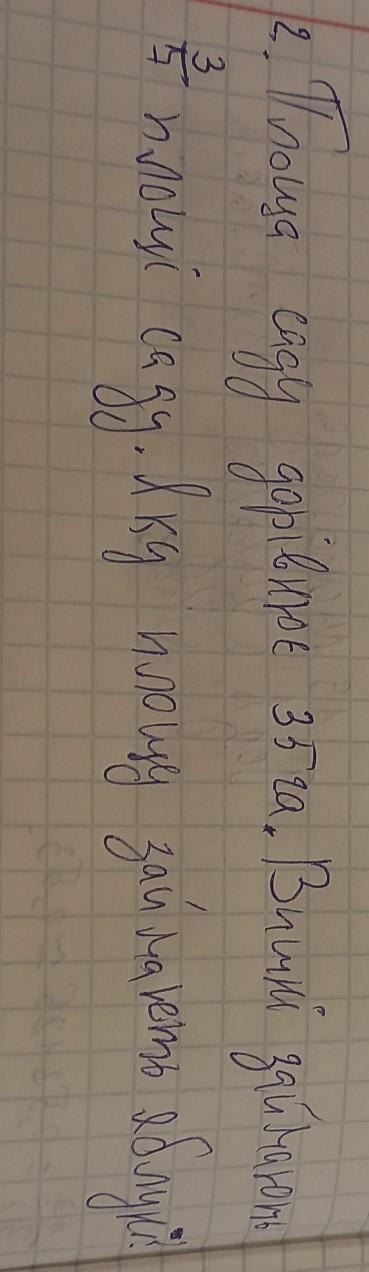 2. Площа саду дорівнює 35 га. Вишні займають
3/7 площі саду. Яку площу займають яблуні